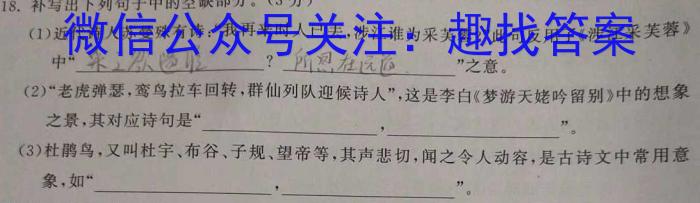 18. 补写出下列句子中的空缺部分。(3分)
(1)近代诗人苏曼殊有诗:"我再来时人已去,涉江谁为采芙蓉",此句反用了《涉江采芙蓉》
微信公众号关注:趣找答案
中"采之欲遗谁?所思在远道"之意。
(2)"老虎弹瑟,鸾鸟拉车回转,群仙列队迎候诗人",这是李白《梦游天姥吟留别》中的想象
之景,其对应诗句是"____,____"。
(3)杜鹃鸟,又叫杜宇、布谷、子规、望帝等,其声悲切,闻之令人动容,是古诗文中常用意
象,如"____,____"。